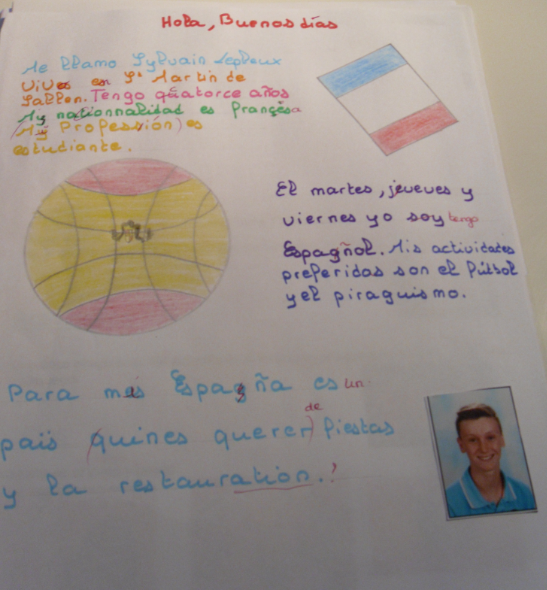 Hola, Buenos días
Me llamo Sylvain Lepreux
vives en St Martin de
Sallen. Tengo quatorce años
My nationnalidad es françesa
My Profession) es
estudiante.
El martes, jeueves y
viernes yo soy tengo
Español. Mis actividades
preferidas son el fútbol
y el piraguismo.
Para mes España es un
de
païs quines querer) fiestas
y la restauration.!